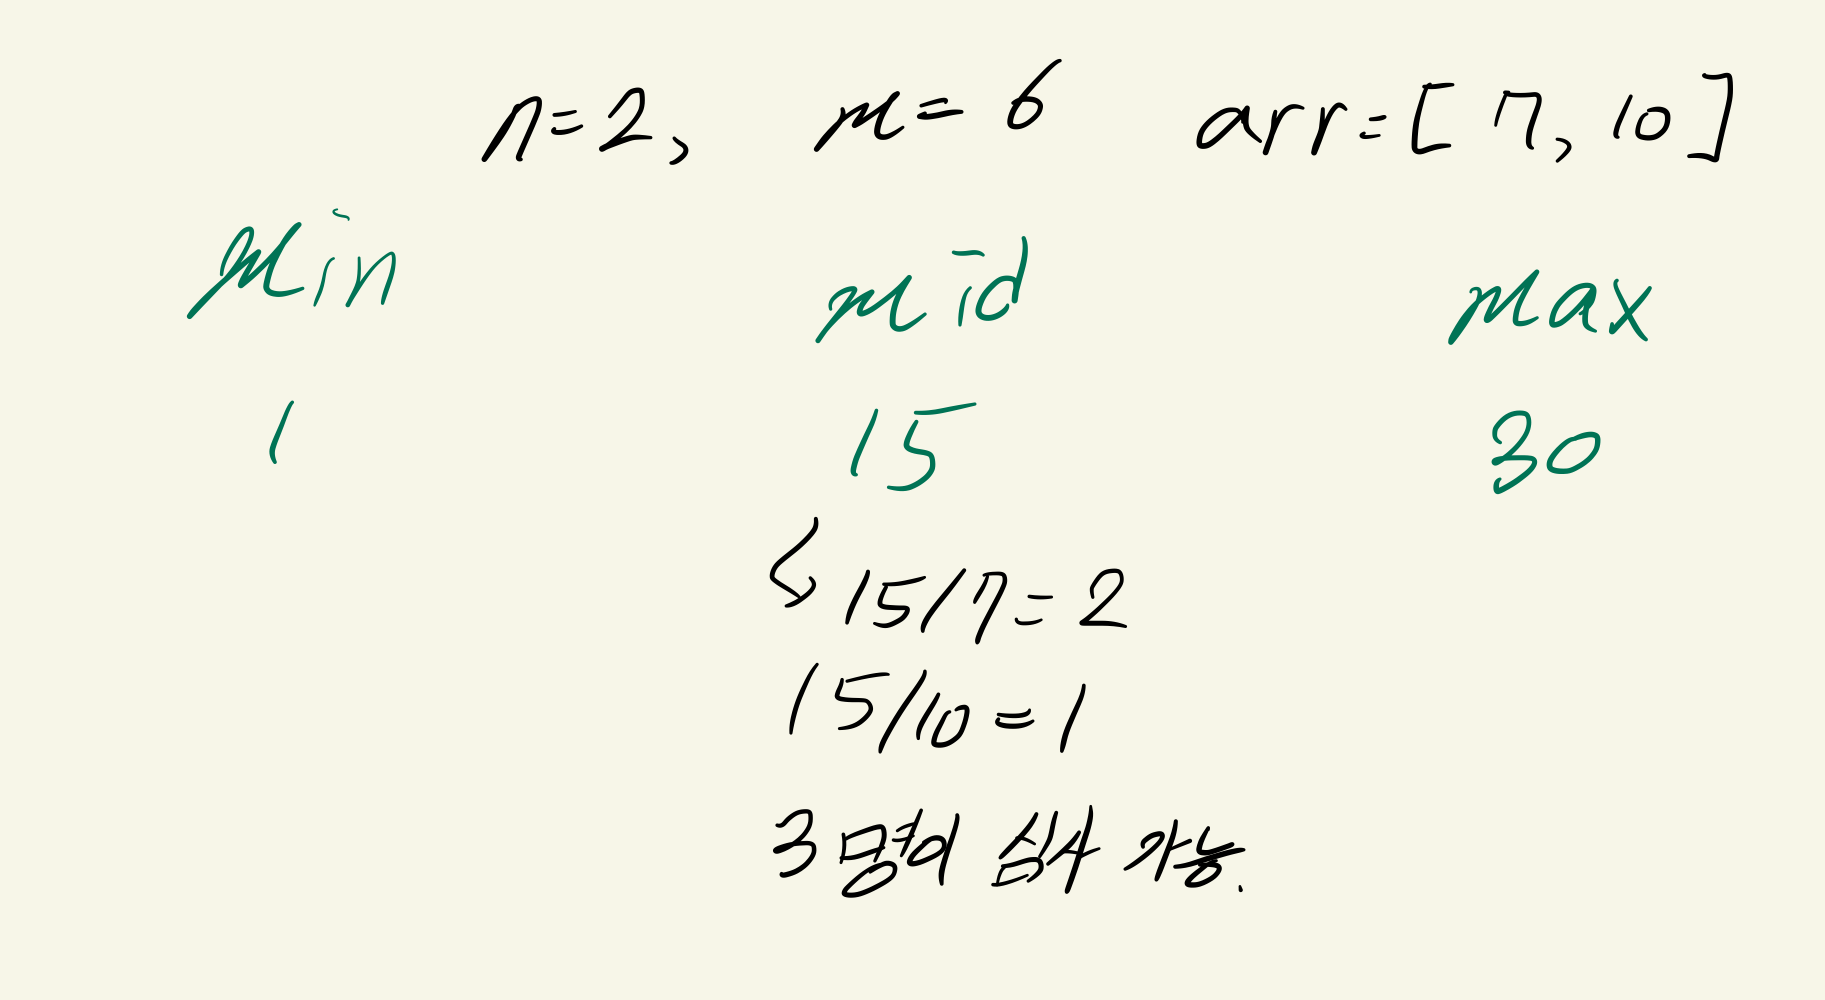 n=2, m=6 arr=[7, 10]
min mid max
1 15 30
15/7=2
15/10=1
3명이 심사 가능.